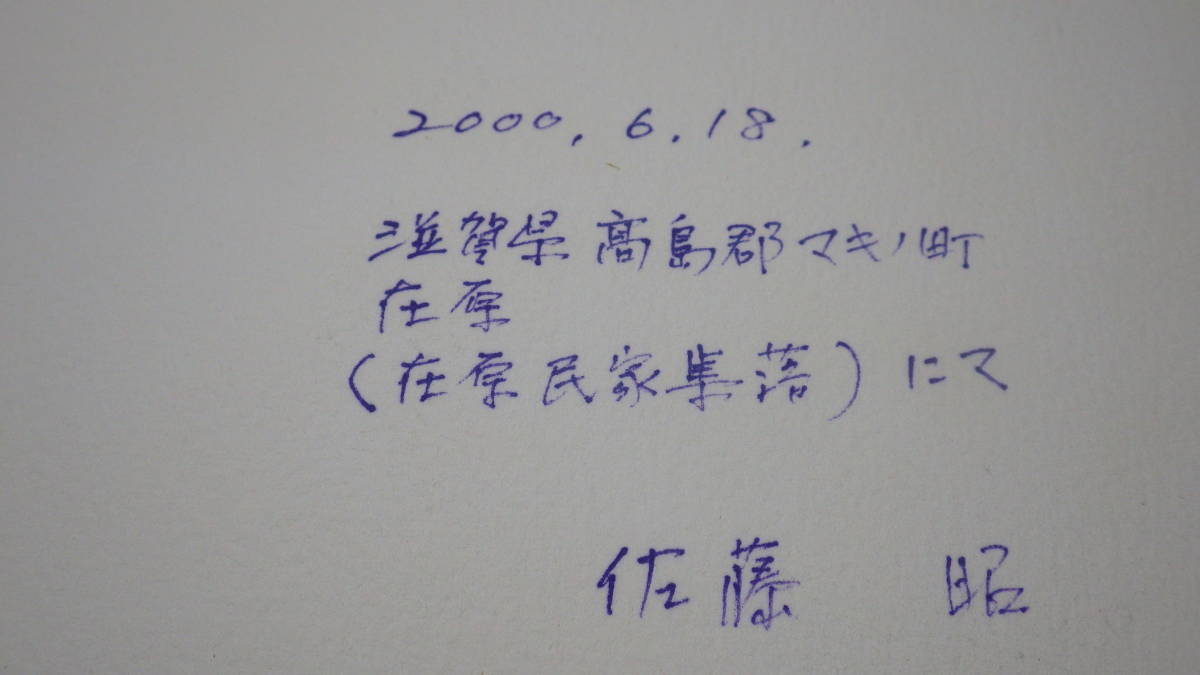 2000. 6. 18.
滋賀県高島郡マキノ町
在原
(在原民家集落)にて
佐藤 昭